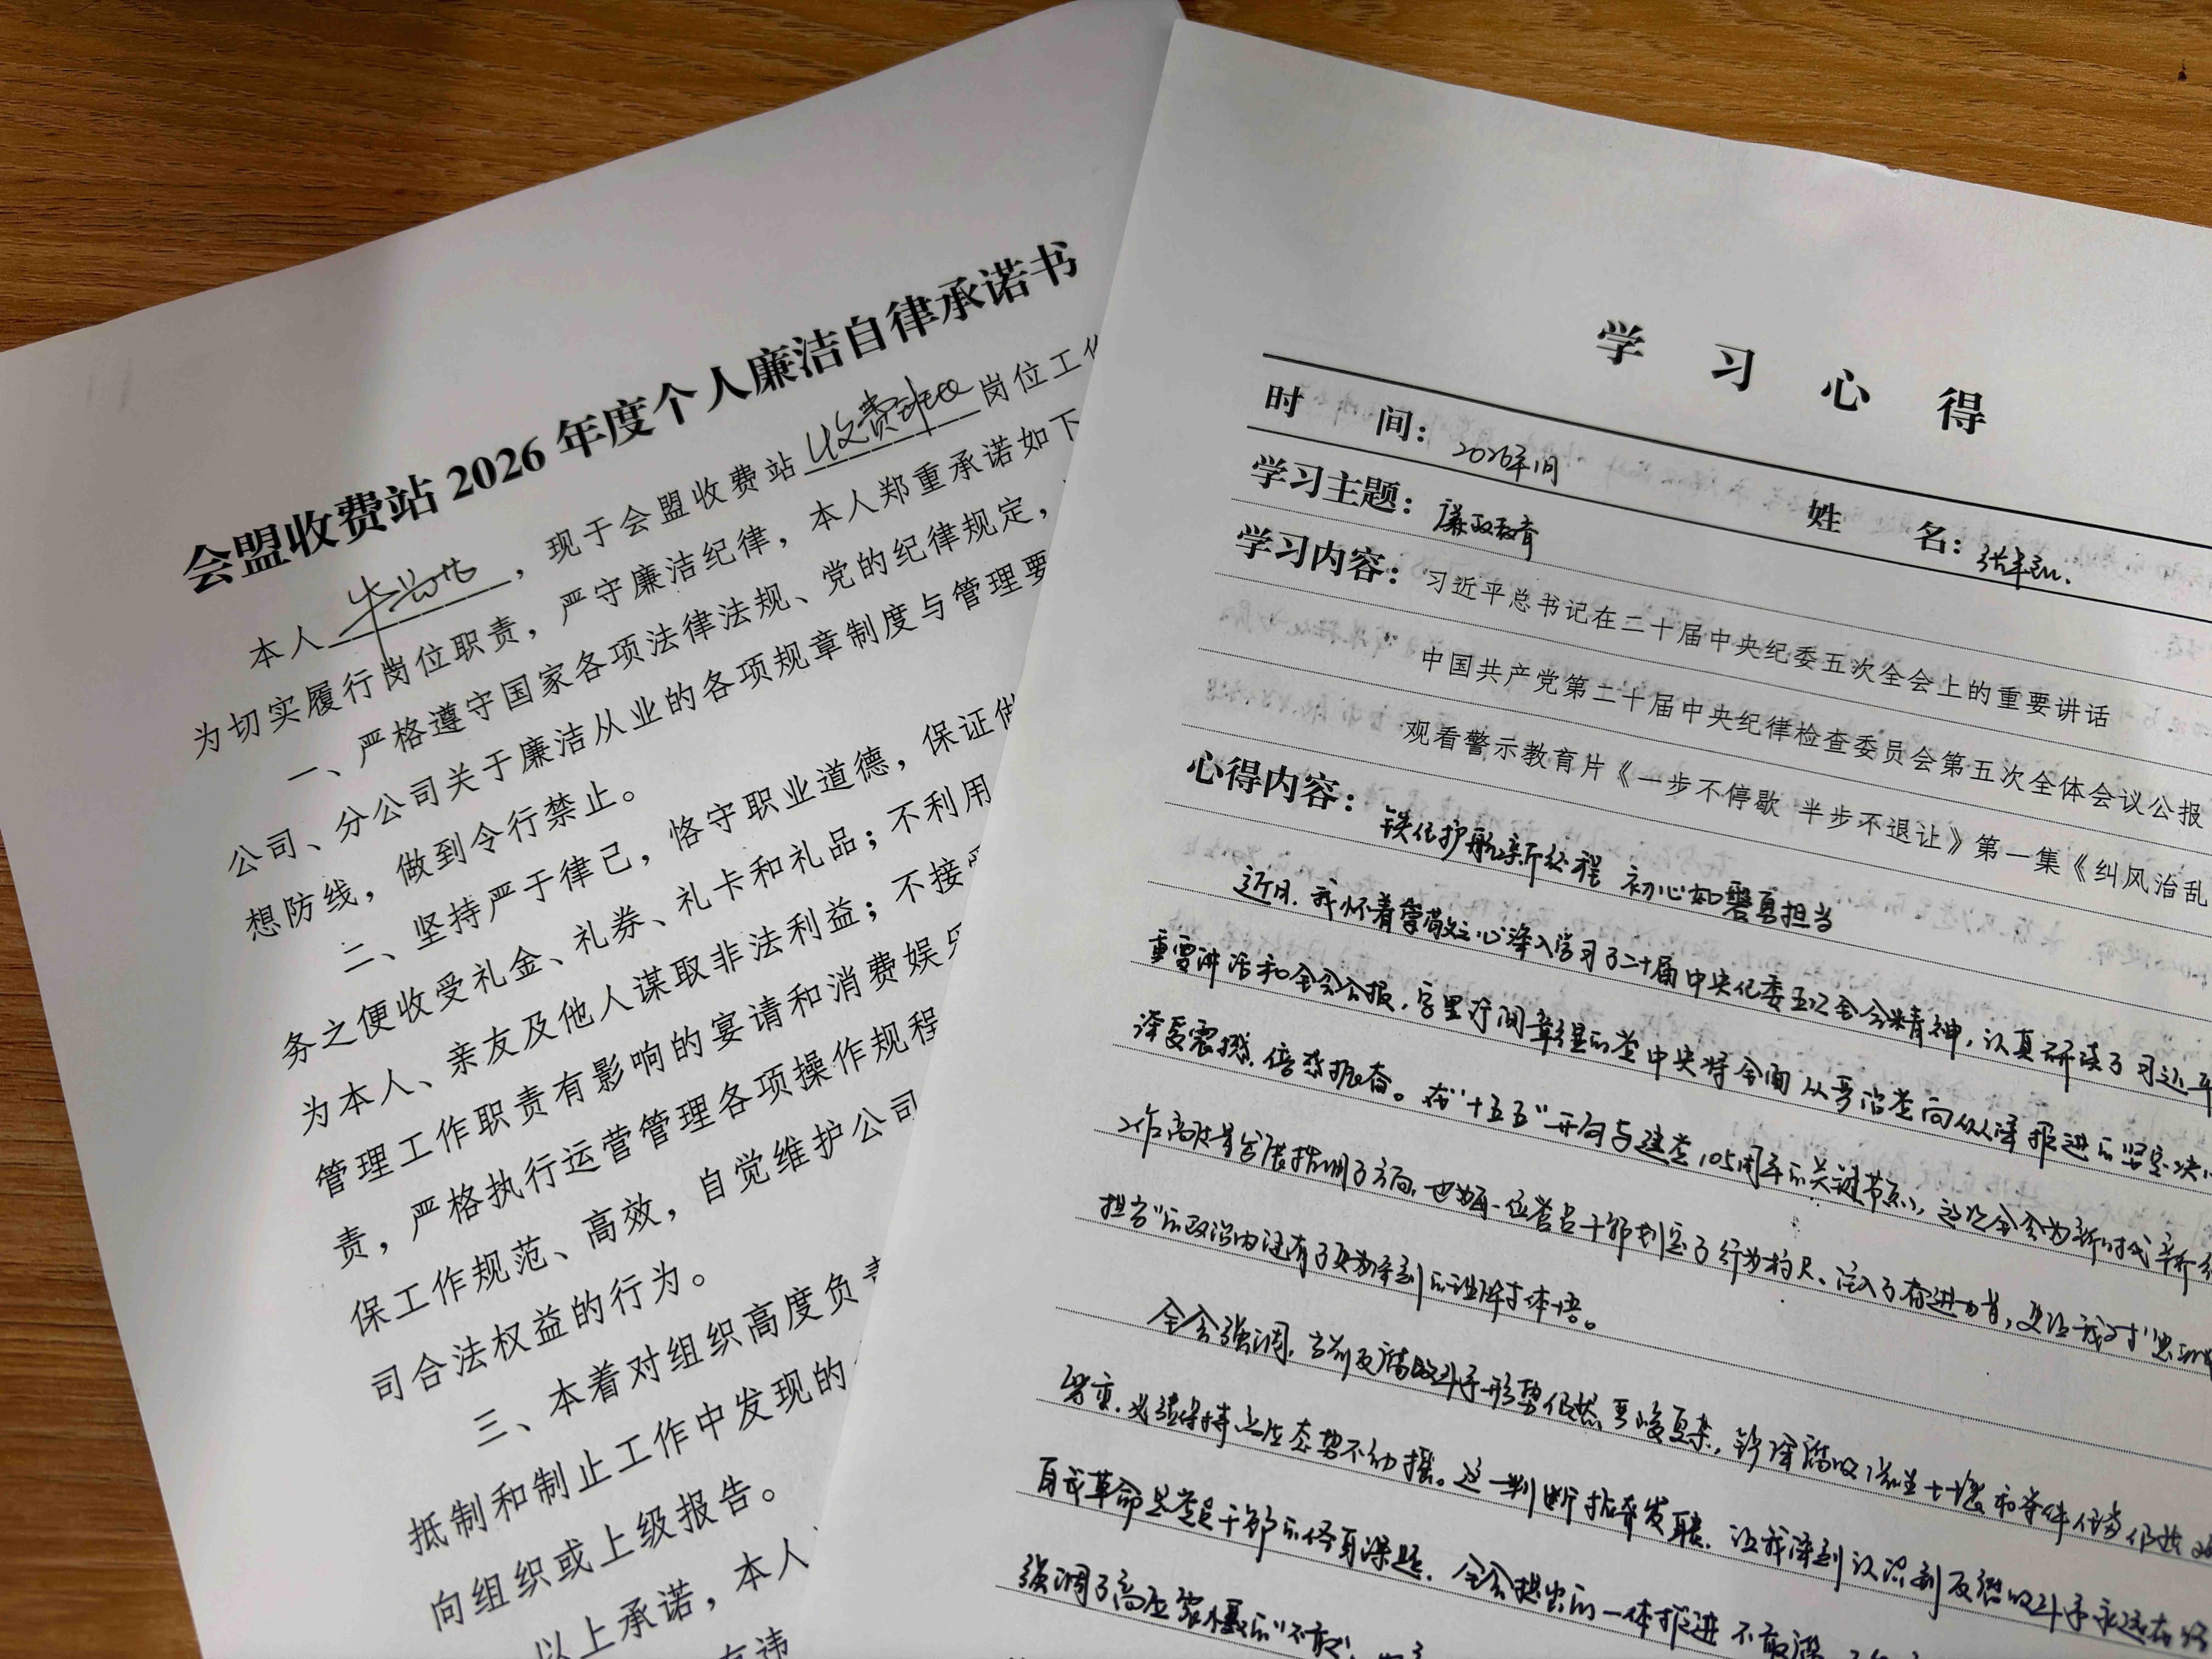 会盟收费站 2026 年度个人廉洁自律承诺书
本人，现于会盟收费站收费班长岗位工作
为切实履行岗位职责，严守廉洁纪律，本人郑重承诺如下
一、严格遵守国家各项法律法规、党的纪律规定，
公司、分公司关于廉洁从业的各项规章制度与管理要
想防线，做到令行禁止。
二、坚持严于律己，恪守职业道德，保证做
务之便收受礼金、礼券、礼卡和礼品；不利用
为本人、亲友及他人谋取非法利益；不接受
管理工作职责有影响的宴请和消费娱乐
责，严格执行运营管理各项操作规程
保工作规范、高效，自觉维护公司
司合法权益的行为。
三、本着对组织高度负责
抵制和制止工作中发现的
向组织或上级报告。
以上承诺，本人
有违
学 习 心 得
时 间：2026年1月
姓 名：
学习主题：廉政教育
学习内容：习近平总书记在二十届中央纪委五次全会上的重要讲话
中国共产党第二十届中央纪律检查委员会第五次全体会议公报
观看警示教育片《一步不停歇 半步不退让》第一集《纠风治乱
心得内容：铁纪护航新征程 初心如磐勇担当
近日，我怀着崇敬之心深入学习了二十届中央纪委五次全会精神，认真研读了习近平
重要讲话和全会公报，字里行间彰显的党中央将全面从严治党向纵深推进的坚定决心
深受震撼，倍感振奋。在“十五五”开局与建党105周年的关键节点，这次全会为新时代新征
工作高质量发展指明了方向，也为每一位党员干部划定了行为标尺、注入了奋进力量，更让我对“忠诚
担当”的政治内涵有了更为深刻的理解与体悟。
全会强调，当前反腐败斗争形势仍然严峻复杂，铲除腐败滋生土壤和条件任务仍然
繁重，必须保持高压态势不动摇。这一判断振聋发聩，让我深刻认识到反腐败斗争永远在路
自我革命是党员干部的终身课题。全会提出的一体推进不敢腐、
强调了高压震慑的“不敢”，